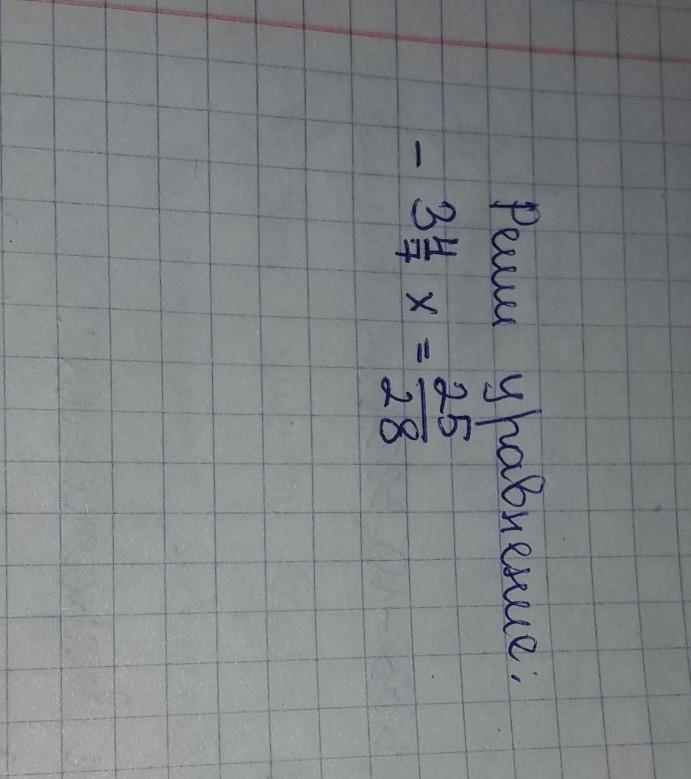 Реши уравнение:
- 3 4/7 x = 25/28